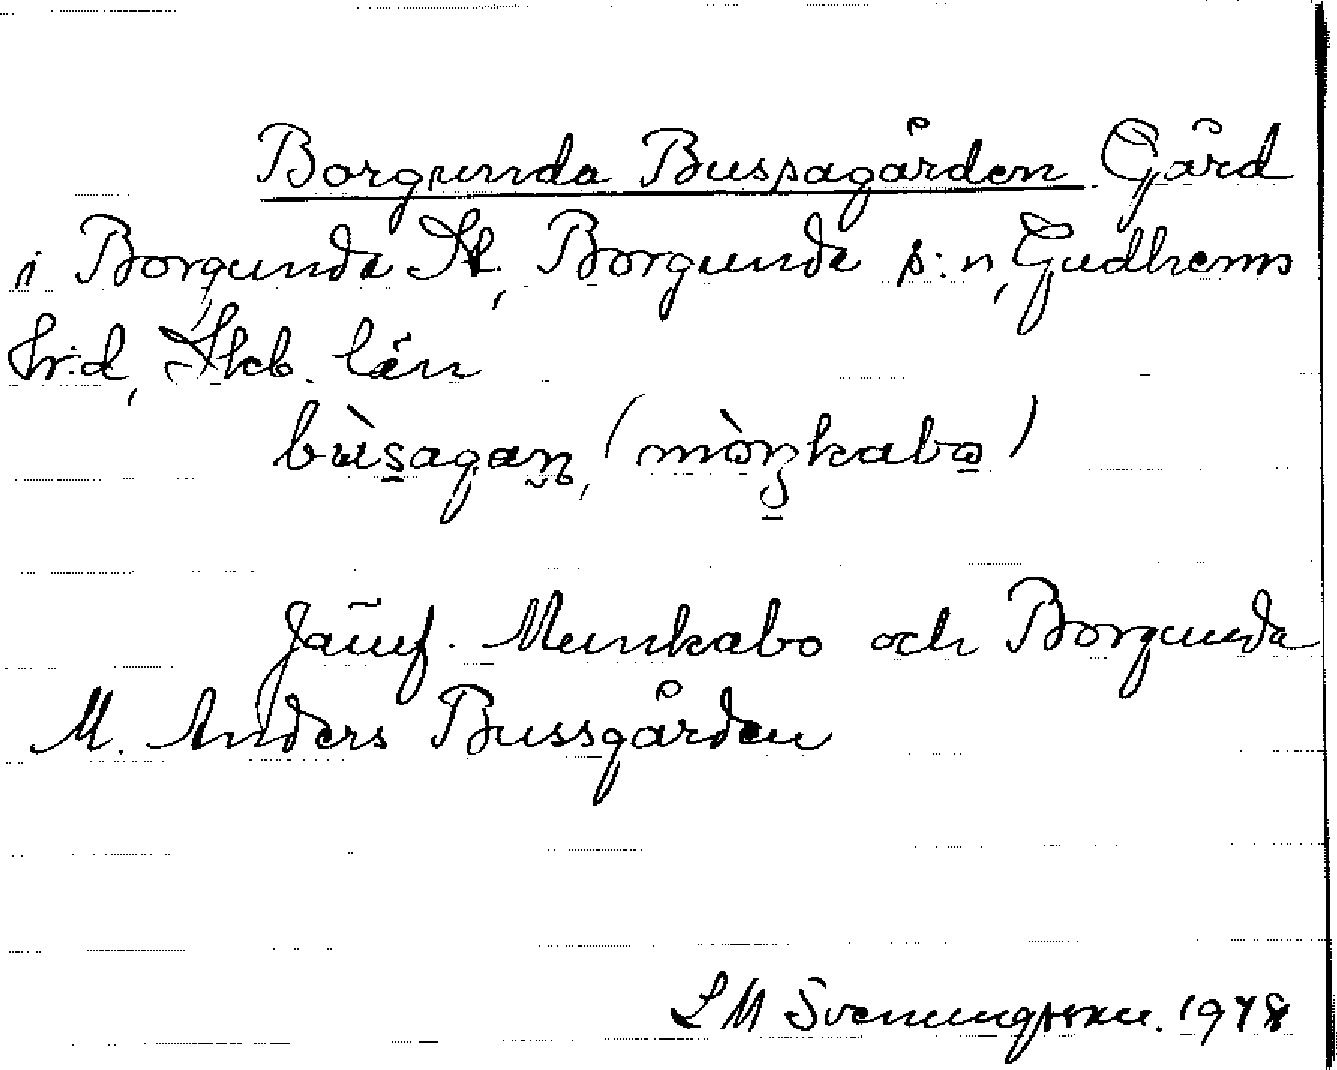 Borgunda Bussagården Gård
i Borgunda St., Borgunda s:n, Gudhems
hr:d, Skb. län
bùs̲agan̲, (mòŋ̲kabo̲)
Jämf. Munkabo och Borgunda
M. Anders Bussgården
L M Svenungsson. 1948